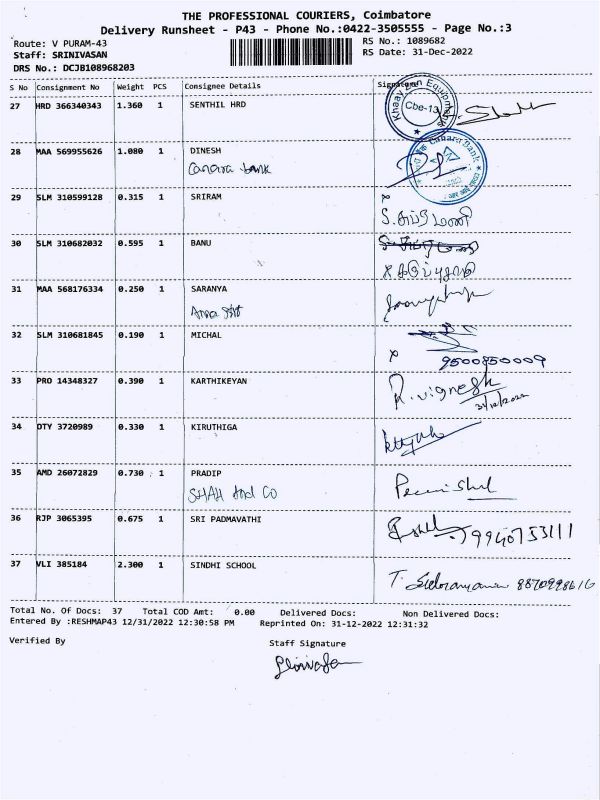 THE PROFESSIONAL COURIERS, Coimbatore
Delivery Runsheet - P43 - Phone No.:0422-3505555 - Page No.:3
Route: V PURAM-43
RS No.: 1089682
Staff: SRINIVASAN
RS Date: 31-Dec-2022
DRS No.: DCJB108968203
S No Consignment No Weight PCS Consignee Details Signature
27 HRD 366340343 1.360 1 SENTHIL HRD
Cbe-13
28 MAA 569955626 1.080 1 DINESH
Canara bank
Canara Bank
29 SLM 310599128 0.315 1 SRIRAM
30 SLM 310682032 0.595 1 BANU
31 MAA 568176334 0.250 1 SARANYA
32 SLM 310681845 0.190 1 MICHAL
9500850009
33 PRO 14348327 0.390 1 KARTHIKEYAN
R. vignesh
31/12/2022
34 OTY 3720989 0.330 1 KIRUTHIGA
35 AMD 26072829 0.730 1 PRADIP
SHAH And CO
36 RJP 3065395 0.675 1 SRI PADMAVATHI
9940753111
37 VLI 385184 2.300 1 SINDHI SCHOOL
Total No. Of Docs: 37 Total COD Amt: 0.00 Delivered Docs: Non Delivered Docs:
Entered By :RESHMAP43 12/31/2022 12:30:58 PM Reprinted On: 31-12-2022 12:31:32
Verified By Staff Signature